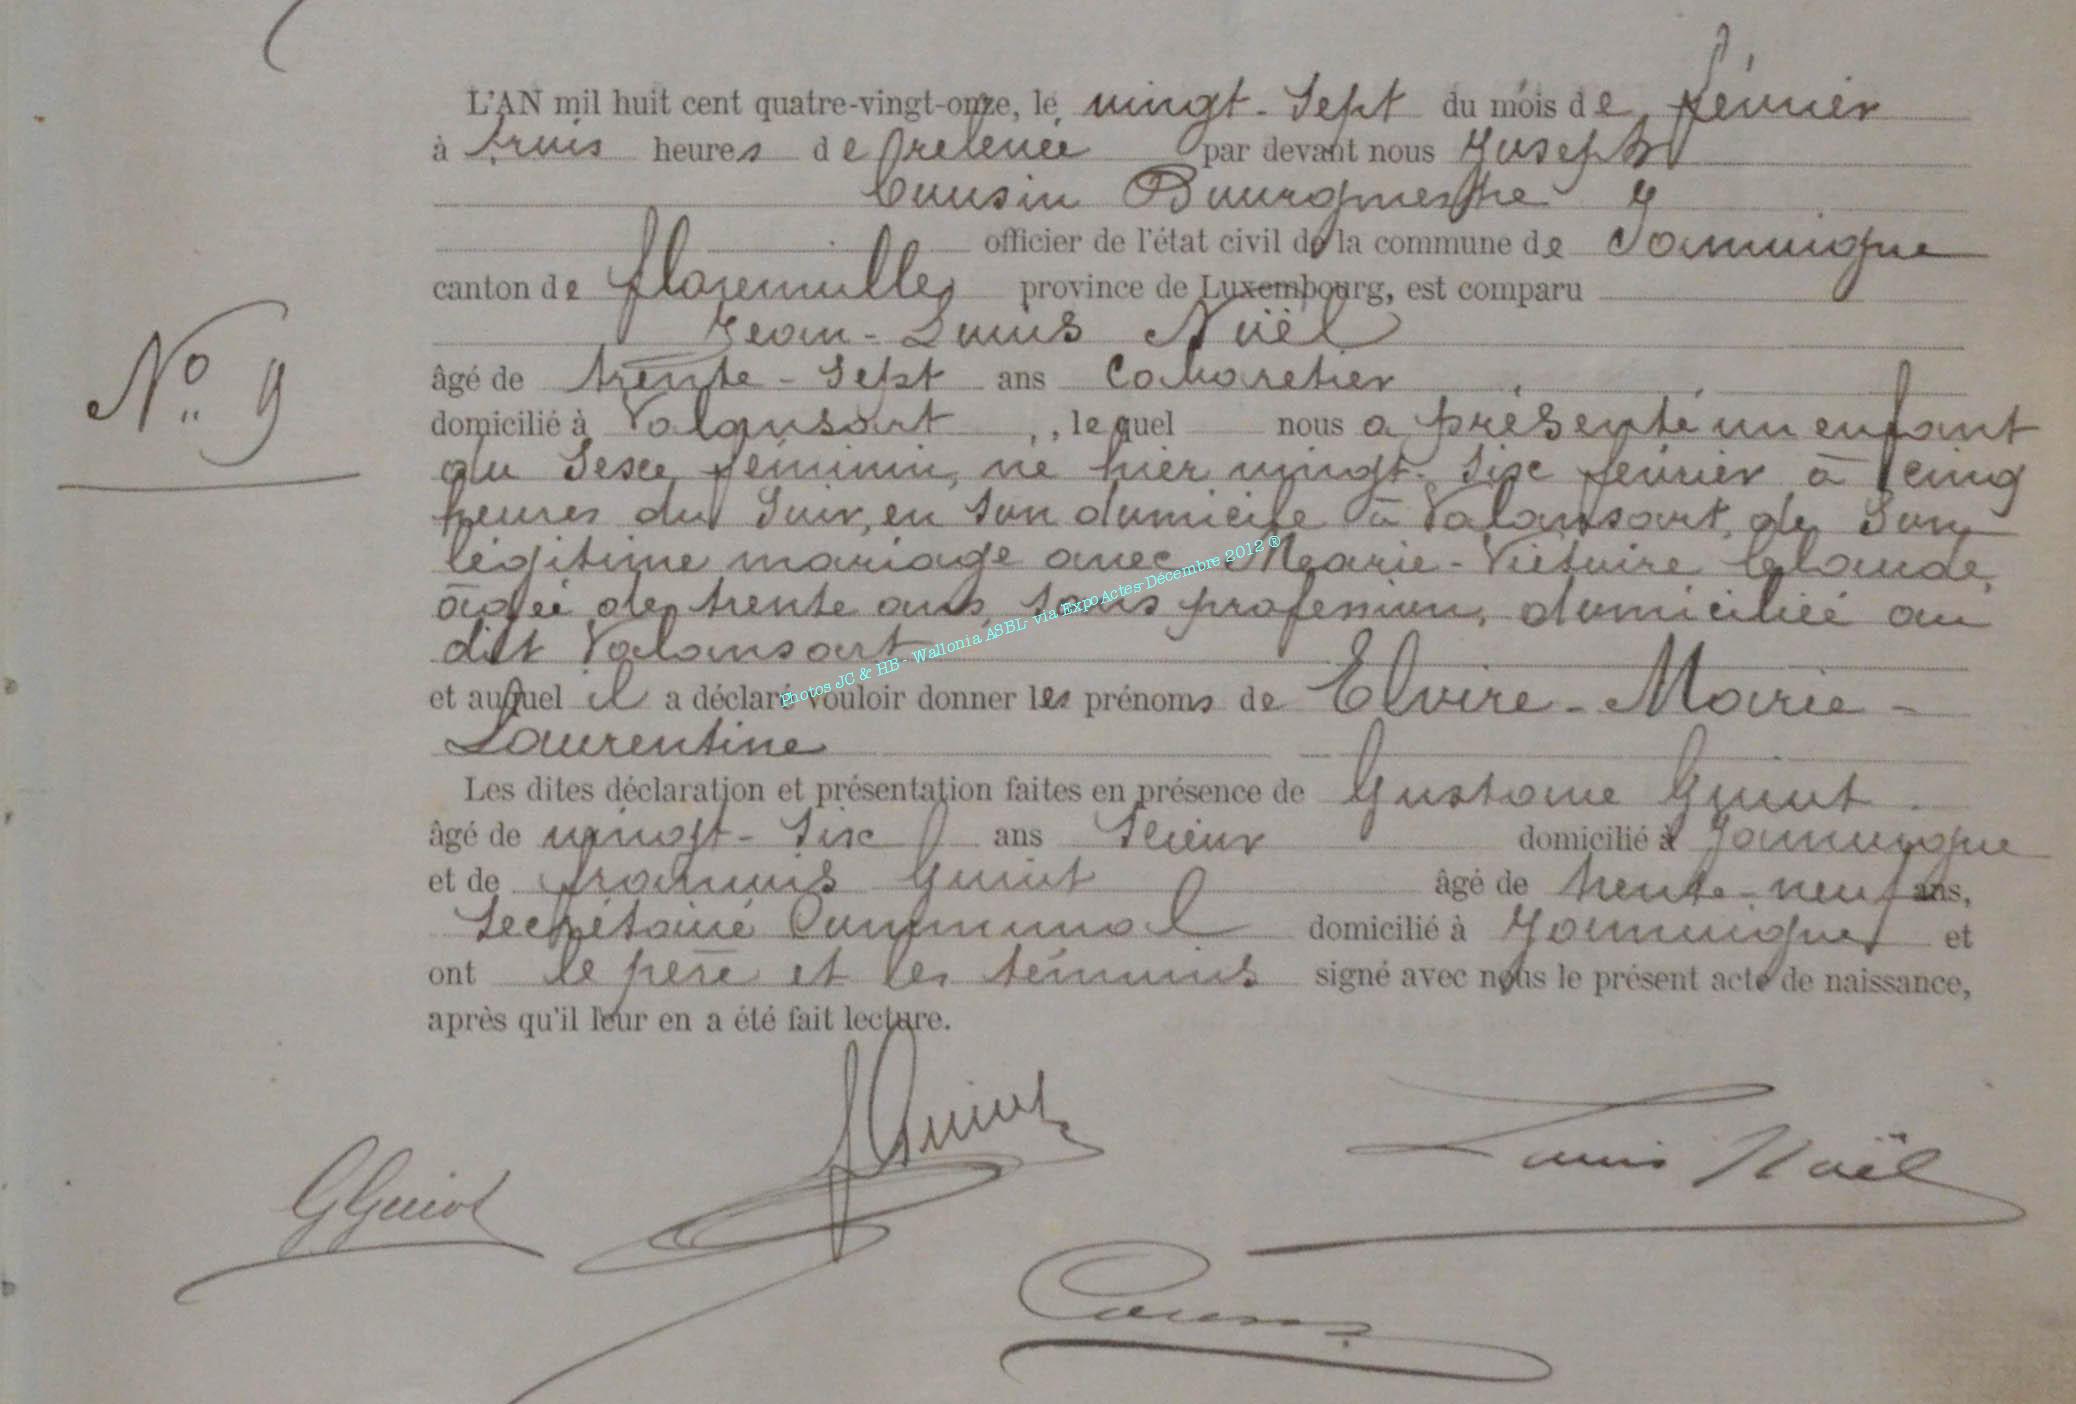 L'AN mil huit cent quatre-vingt-onze, le vingt-sept du mois de février
à trois heures de relevée par devant nous Joseph
Cousin Bourgmestre
officier de l'état civil de la commune de Jamoigne
canton de florenville, province de Luxembourg, est comparu
Jean-Louis Noël
âgé de trente-sept ans Cabaretier
domicilié à Valansart, lequel nous a présenté un enfant
du sexe féminin, né hier vingt-six février à cinq
heures du soir, en son domicile à Valansart, de son
légitime mariage avec Marie-Victoire Lalande,
âgée de trente ans, sans profession, domiciliée au
dit Valansart
et auquel il a déclaré vouloir donner les prénoms de Elvire-Marie-
Laurentine
Les dites déclaration et présentation faites en présence de Gustave Guiot
âgé de vingt-six ans Scieur domicilié à Jamoigne
et de françois Guiot âgé de trente-neuf ans,
Secrétaire Communal domicilié à Jamoigne et
ont le père et les témoins signé avec nous le présent acte de naissance,
après qu'il leur en a été fait lecture.
No 9
Photos JC & HB - Wallonia ASBL- via ExpoActes-Décembre 2012 ®
GGuiot
fGuiot
Louis Noël
Cousin